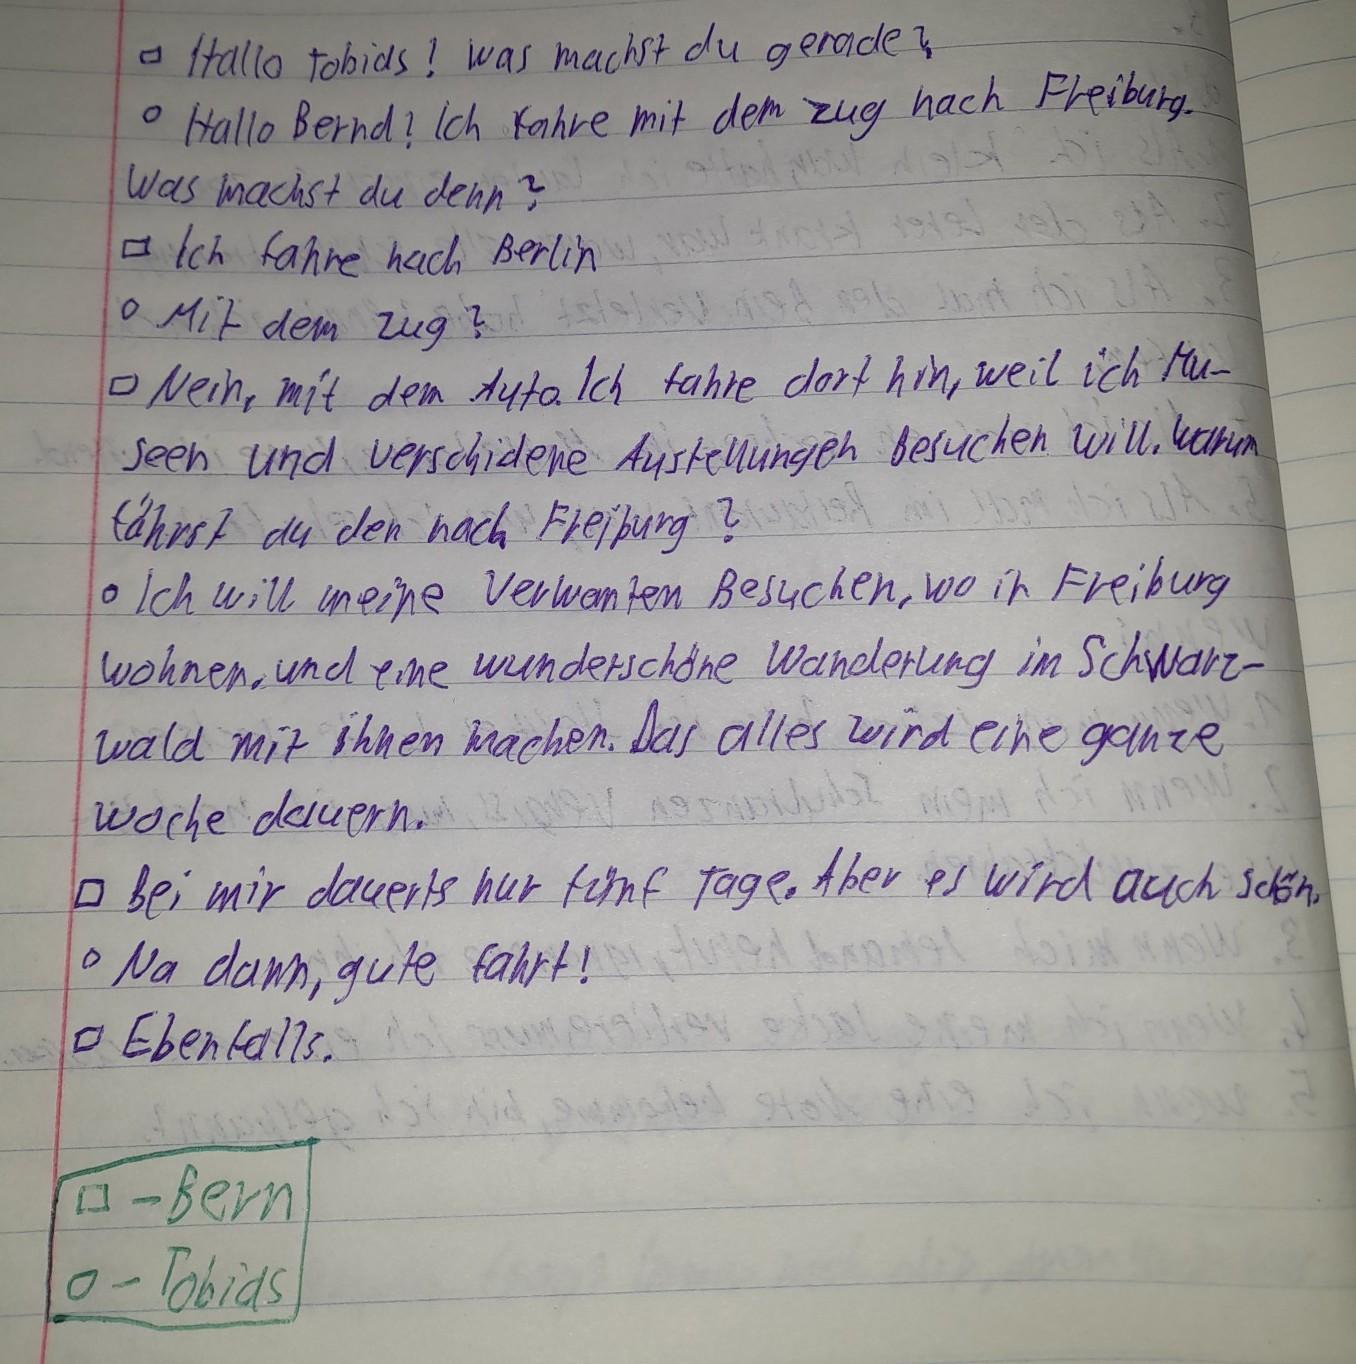 □ Hallo Tobids! Was machst du gerade?
○ Hallo Bernd! Ich fahre mit dem zug nach Freiburg.
Was machst du denn?
□ Ich fahre nach Berlin
○ Mit dem zug?
□ Nein, mit dem Auto. Ich fahre dort hin, weil ich Mu-
seen und verschidene Austellungen Besuchen will. Warum
fährst du den nach Freiburg?
○ Ich will meine Verwanten Besuchen, wo in Freiburg
wohnen, und eine wunderschöne Wanderung im Schwarz-
wald mit ihnen machen. Das alles wird eine ganze
woche dauern.
□ Bei mir dauerts nur fünf Tage. Aber es wird auch schön.
○ Na dann, gute fahrt!
□ Ebenfalls.
□ - Bern
○ - Tobids